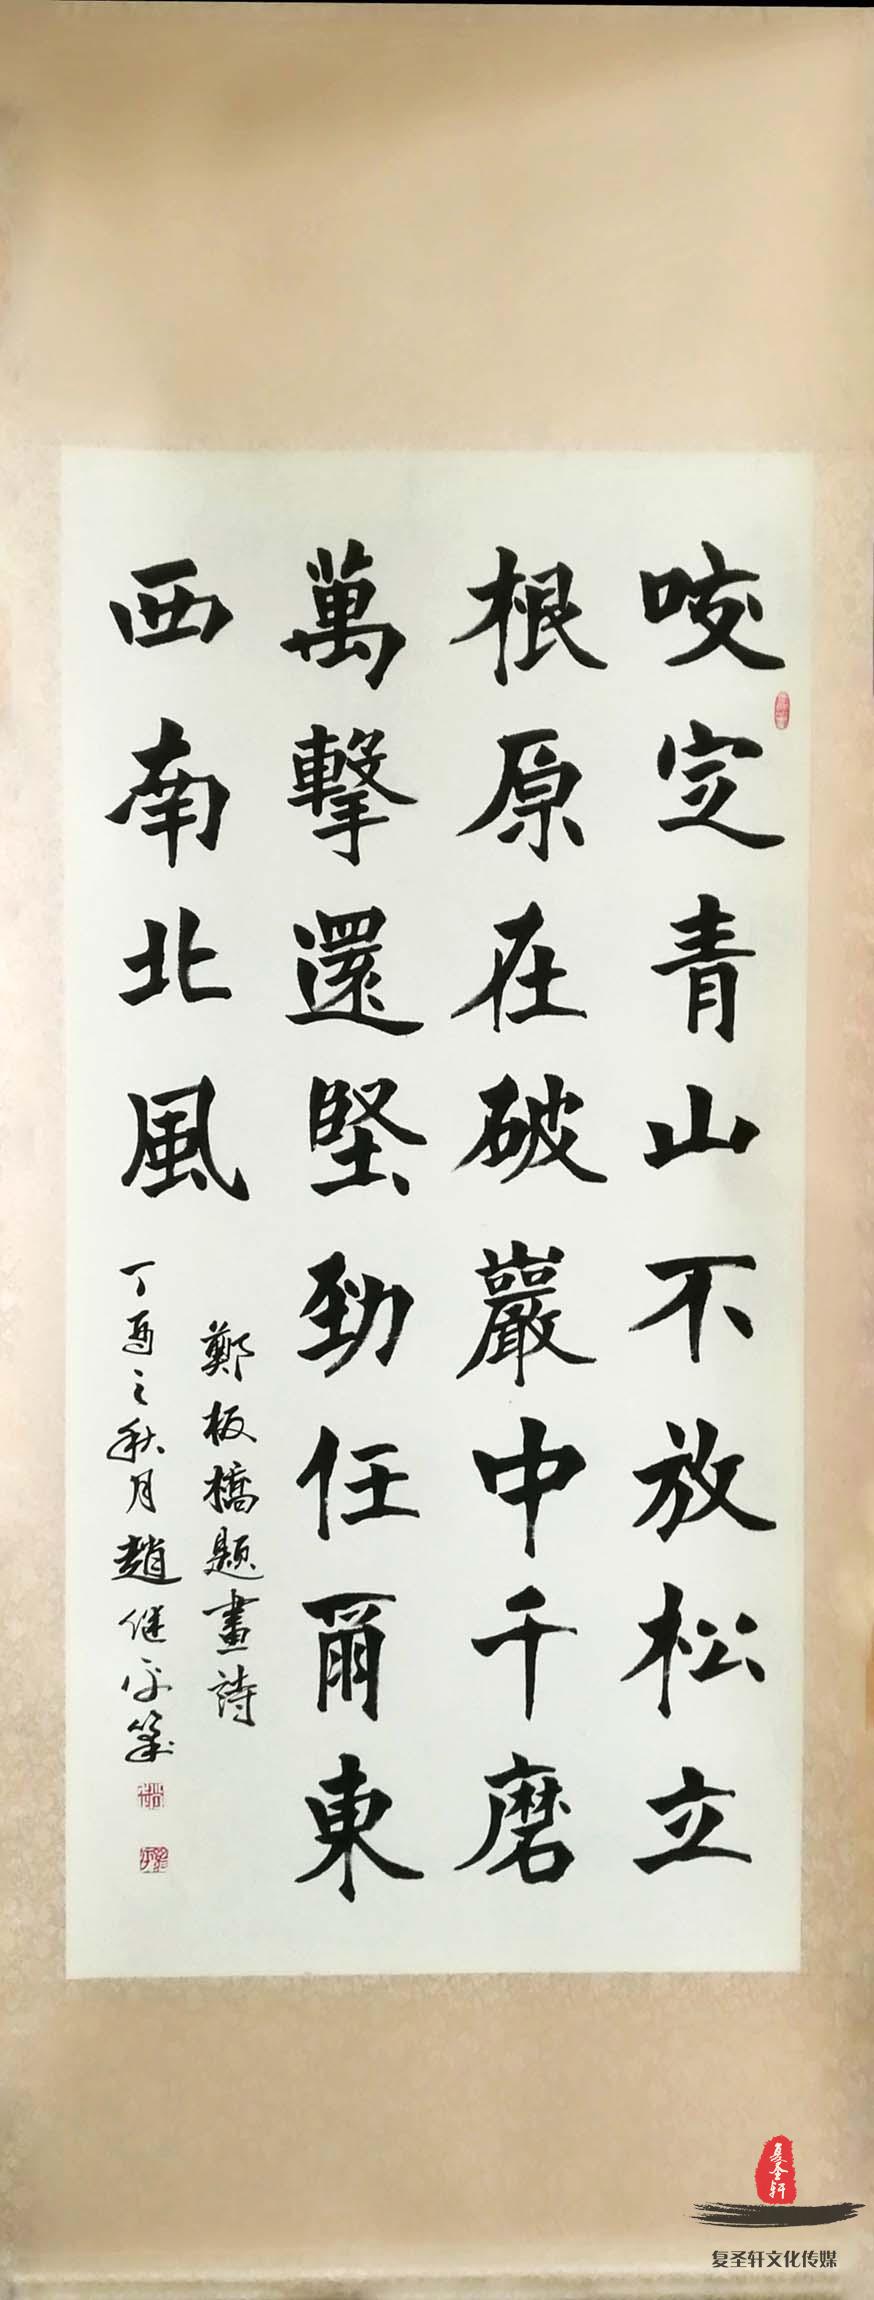 咬定青山不放松立
根原在破巖中千磨
萬擊還堅勁任爾東
西南北風
鄭板橋题畫詩
丁酉之秋月趙继平箋
复圣轩
复圣轩文化传媒